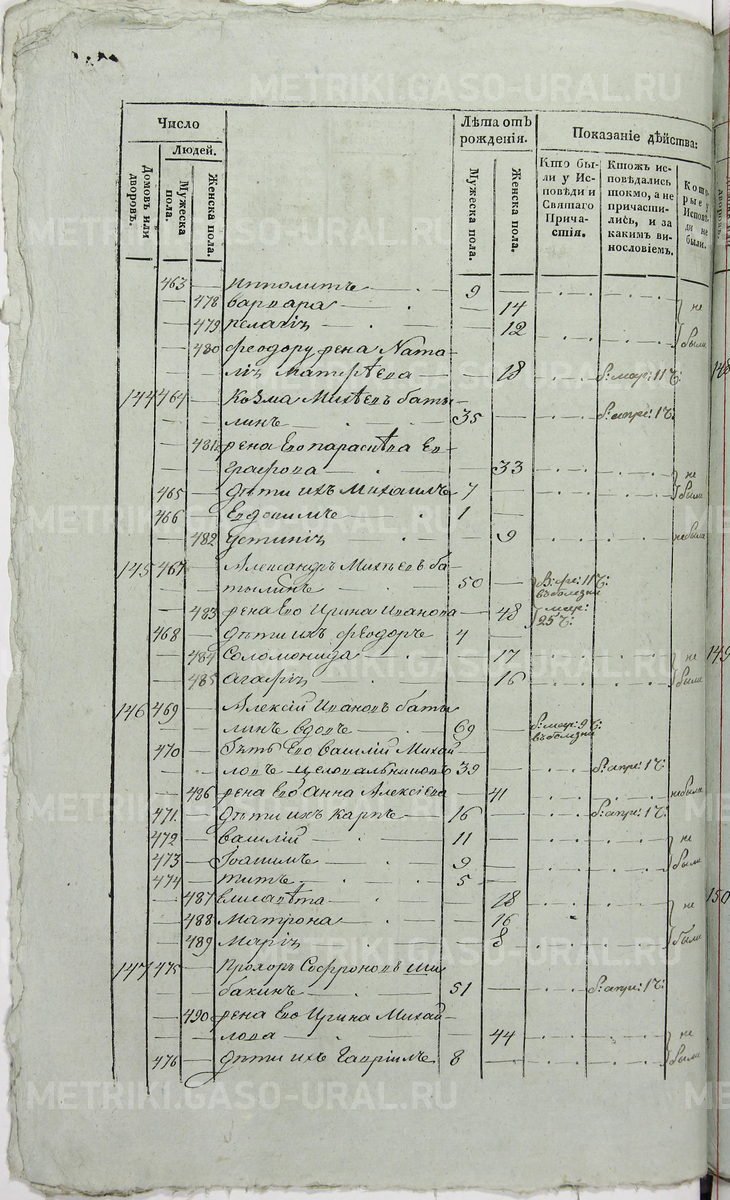 METRIKI.GASO-URAL.RU
Число
Людей.
Домовъ или дворовъ.
Мужеска пола.
Женска пола.
Лѣта отъ рожденія.
Мужеска пола.
Женска пола.
Показаніе дѣйства:
Кто были у Исповѣди и Святаго Причастія.
Ктожъ исповѣдались токмо, а не причастились, и за какимъ винословіемъ.
Которые у Исповѣди не были.
463 Ипполитъ 9
478 Варвара 14 не
479 Пелагія 12 были
480 Феодору жена Ната-
лія Матвѣева 18
144 464 Козма Михѣевъ Баты-
линъ 35
481 жена его Параскева Ев-
графова 33 не
465 дѣти ихъ Михаилъ 7 были
466 Евдокимъ 1
482 Устинія 9 не была
145 467 Александръ Михѣевъ Ба-
тылинъ 50 въ болезни
483 жена его Ирина Иванова 48
468 дѣти ихъ Феодоръ 4 25
484 Соломонида 17 не
485 Агафія 16 были
146 469 Алексій Ивановъ Баты-
линъ вдовъ 69 въ болезни
470 Зять его Василій Михай-
ловъ Целовальниковъ 39
486 жена его Анна Алексіева 41 не была
471 дѣти ихъ Карпъ 16
472 Василій 11 не
473 Іоакимъ 9 были
474 Титъ 5
487 Елисавета 18 не
488 Матрона 16
489 Марія 8 были
147 475 Прохоръ Софроновъ Ши-
бакинъ 51
490 жена его Ирина Михай-
лова 44 не
476 дѣти ихъ Гавріилъ 8 были
148
149
150
METRIKI.GASO-URAL.RU